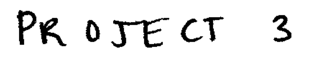 PROJECT 3